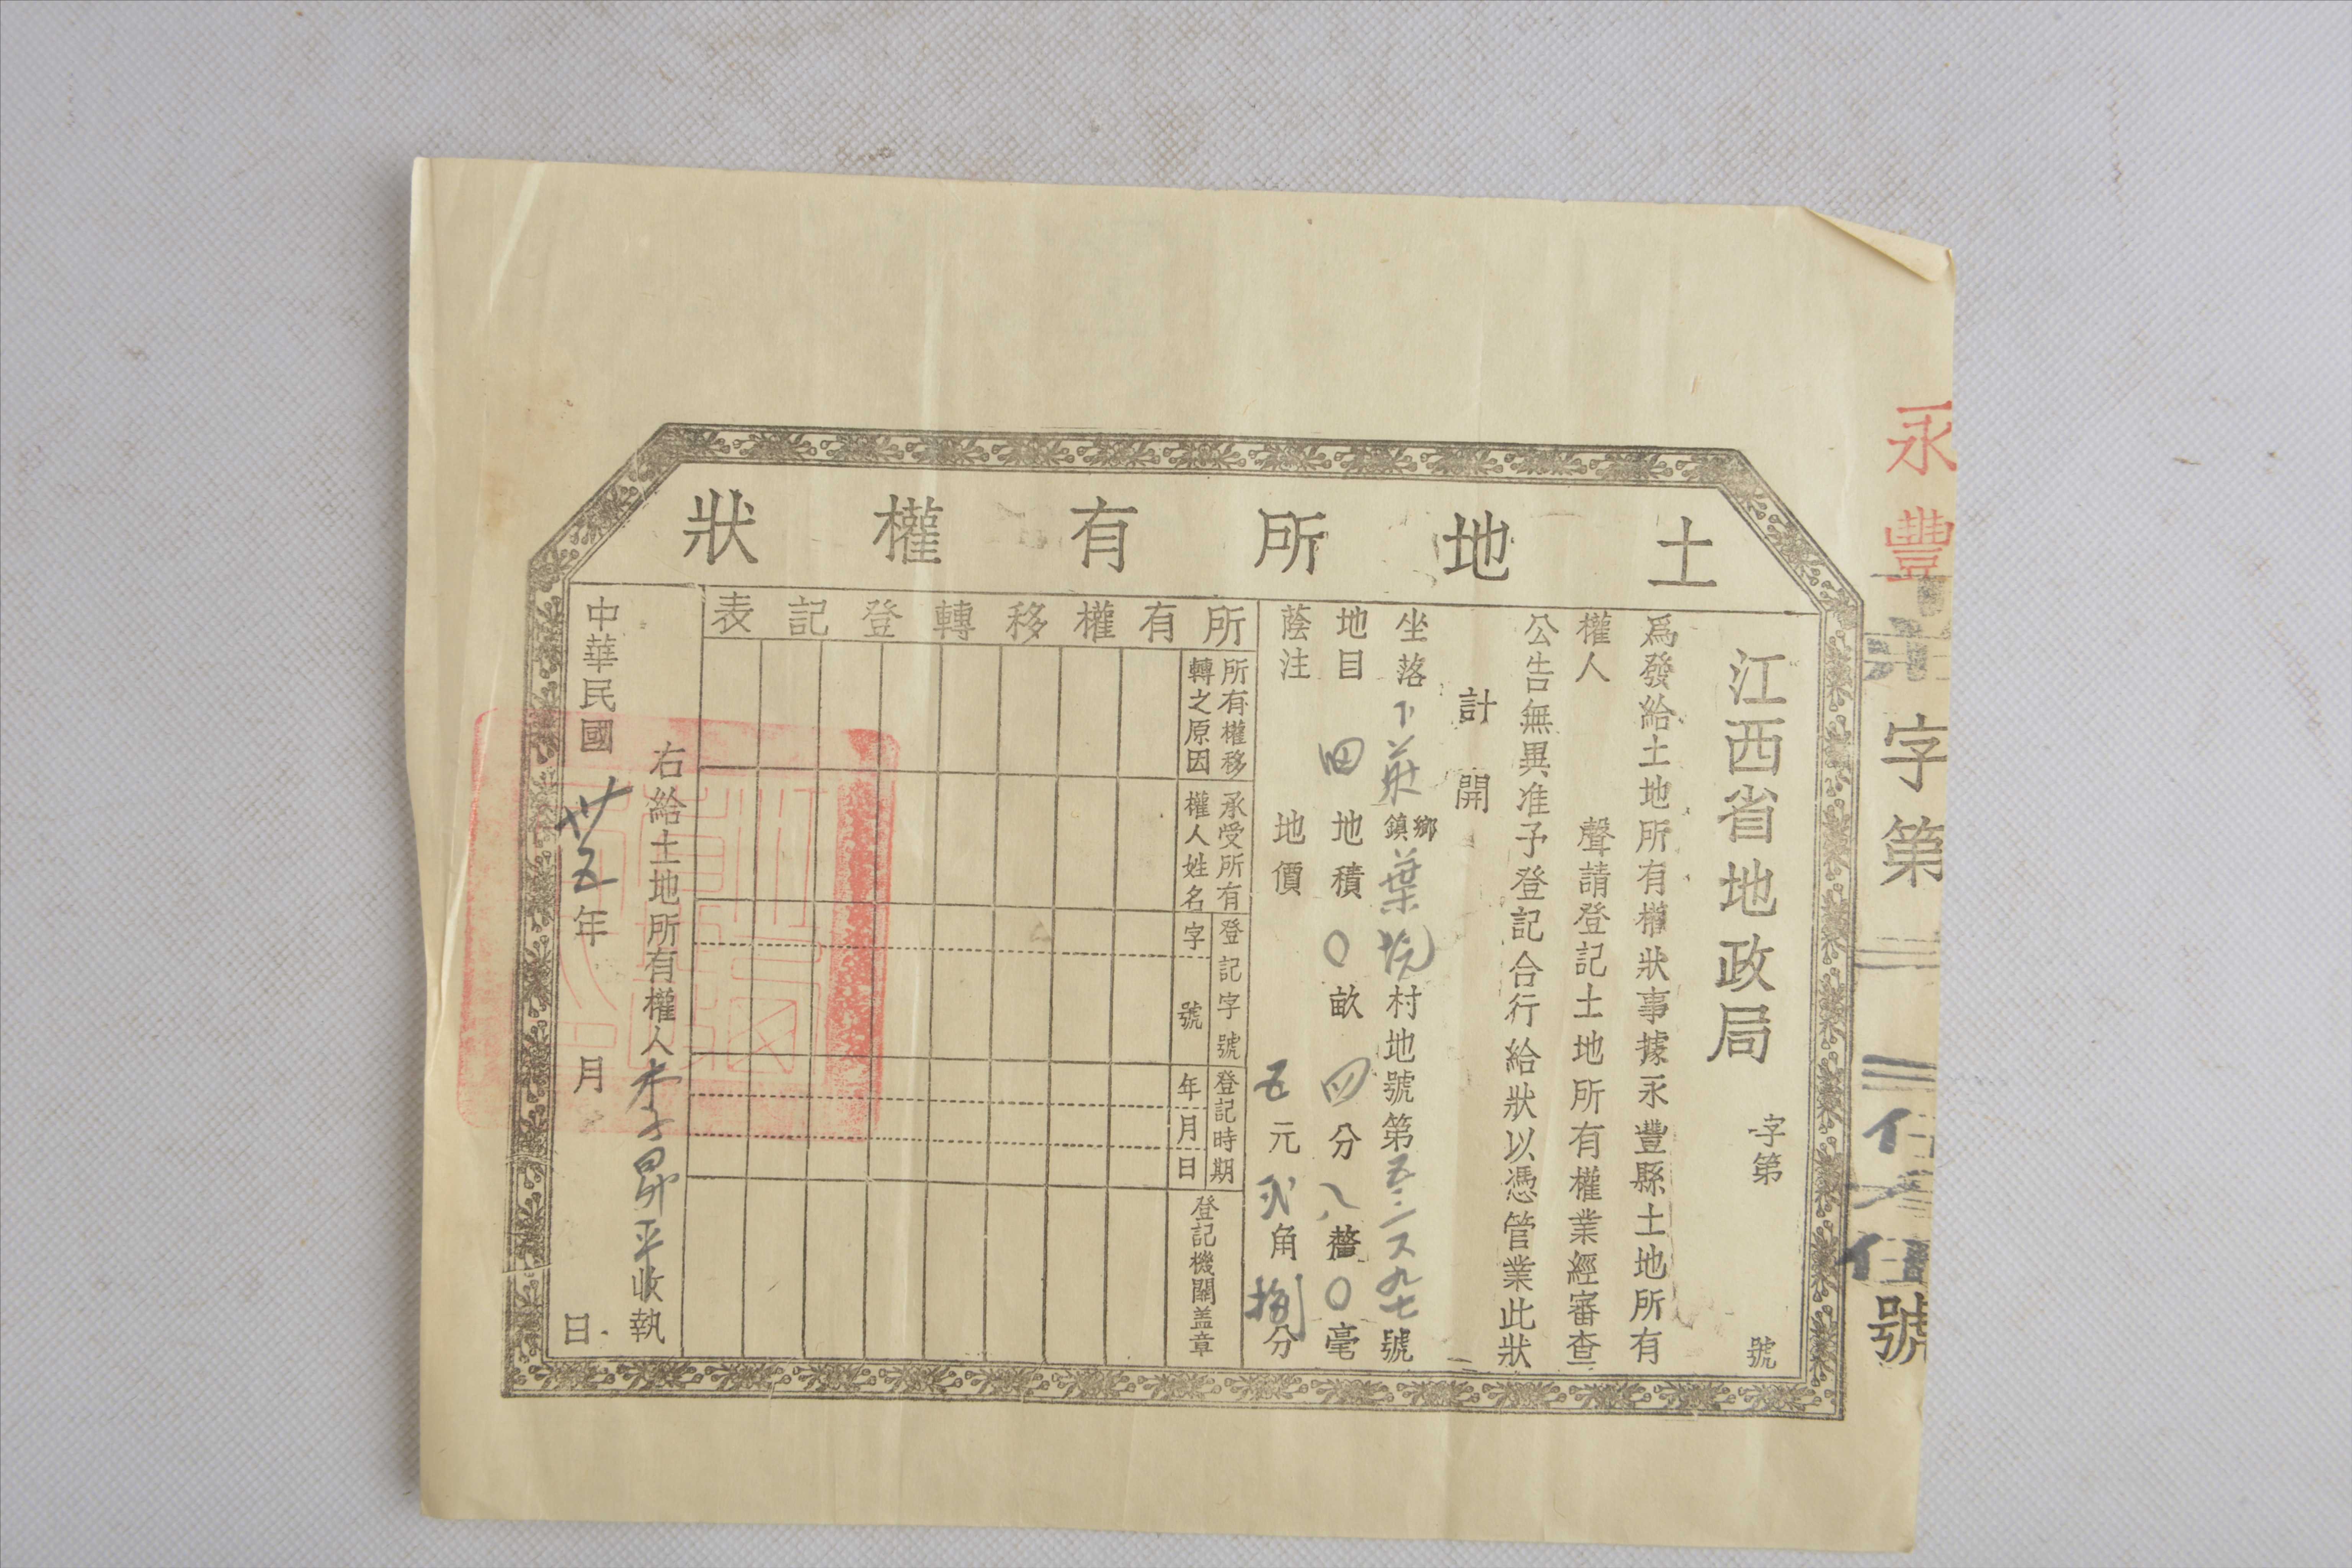 土地所有權狀
永豐
字第
號
江西省地政局
字第 號
爲發給土地所有權狀事據永豐縣土地所有
權人 聲請登記土地所有權業經審查
公告無異准予登記合行給狀以憑管業此狀
計開
坐落下莊鄉鎮葉坑村地號第五 九七號
地目田地積〇畝四分八釐〇毫
蔭注 地價五元貳角捌分
所有權移轉登記表
所有權移轉之原因
承受所有權人姓名
登記字號
字 號
登記時期
年月日
登記機關盖章
右給土地所有權人李昴平收執
中華民國卅五年 月 日